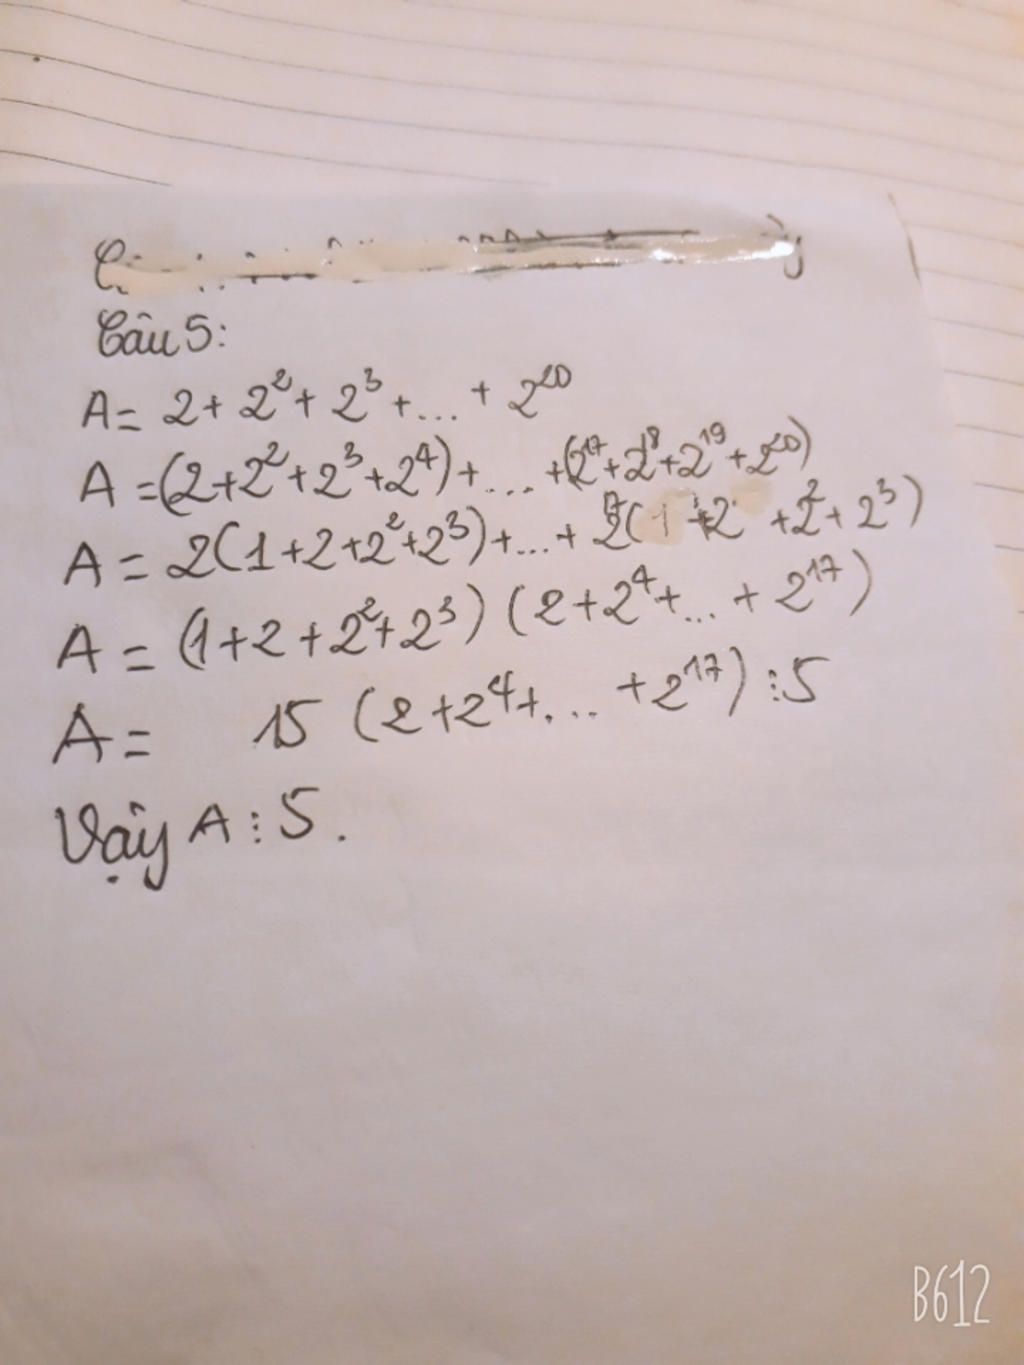 Câu 5:
A = 2 + 2² + 2³ + ... + 2²⁰
A = (2 + 2² + 2³ + 2⁴) + ... + (2¹⁷ + 2¹⁸ + 2¹⁹ + 2²⁰)
A = 2(1 + 2 + 2² + 2³) + ... + 2¹⁷(1 + 2 + 2² + 2³)
A = (1 + 2 + 2² + 2³) (2 + 2⁴ + ... + 2¹⁷)
A = 15 (2 + 2⁴ + ... + 2¹⁷) ⋮ 5
Vậy A ⋮ 5.
B612